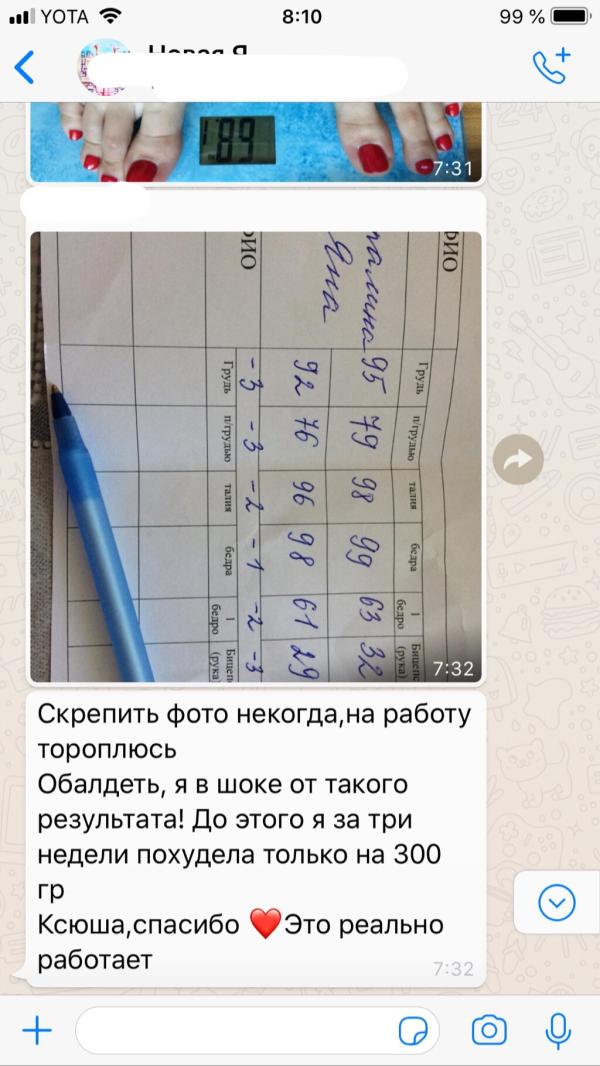 YOTA
8:10
99 %
Новая Я
.89
7:31
ФИО
Грудь
п/грудью
талия
бедра
1 бедро
Бицеп
(рука)
Галина 95 79 98 99 63 32
Яна 92 76 96 98 61 29
-3 -3 -2 -1 -2 -3
ФИО
Грудь
п/грудью
талия
бедра
1 бедро
Бицеп
(рука)
7:32
Скрепить фото некогда,на работу
тороплюсь
Обалдеть, я в шоке от такого
результата! До этого я за три
недели похудела только на 300
гр
Ксюша,спасибо ❤️Это реально
работает
7:32